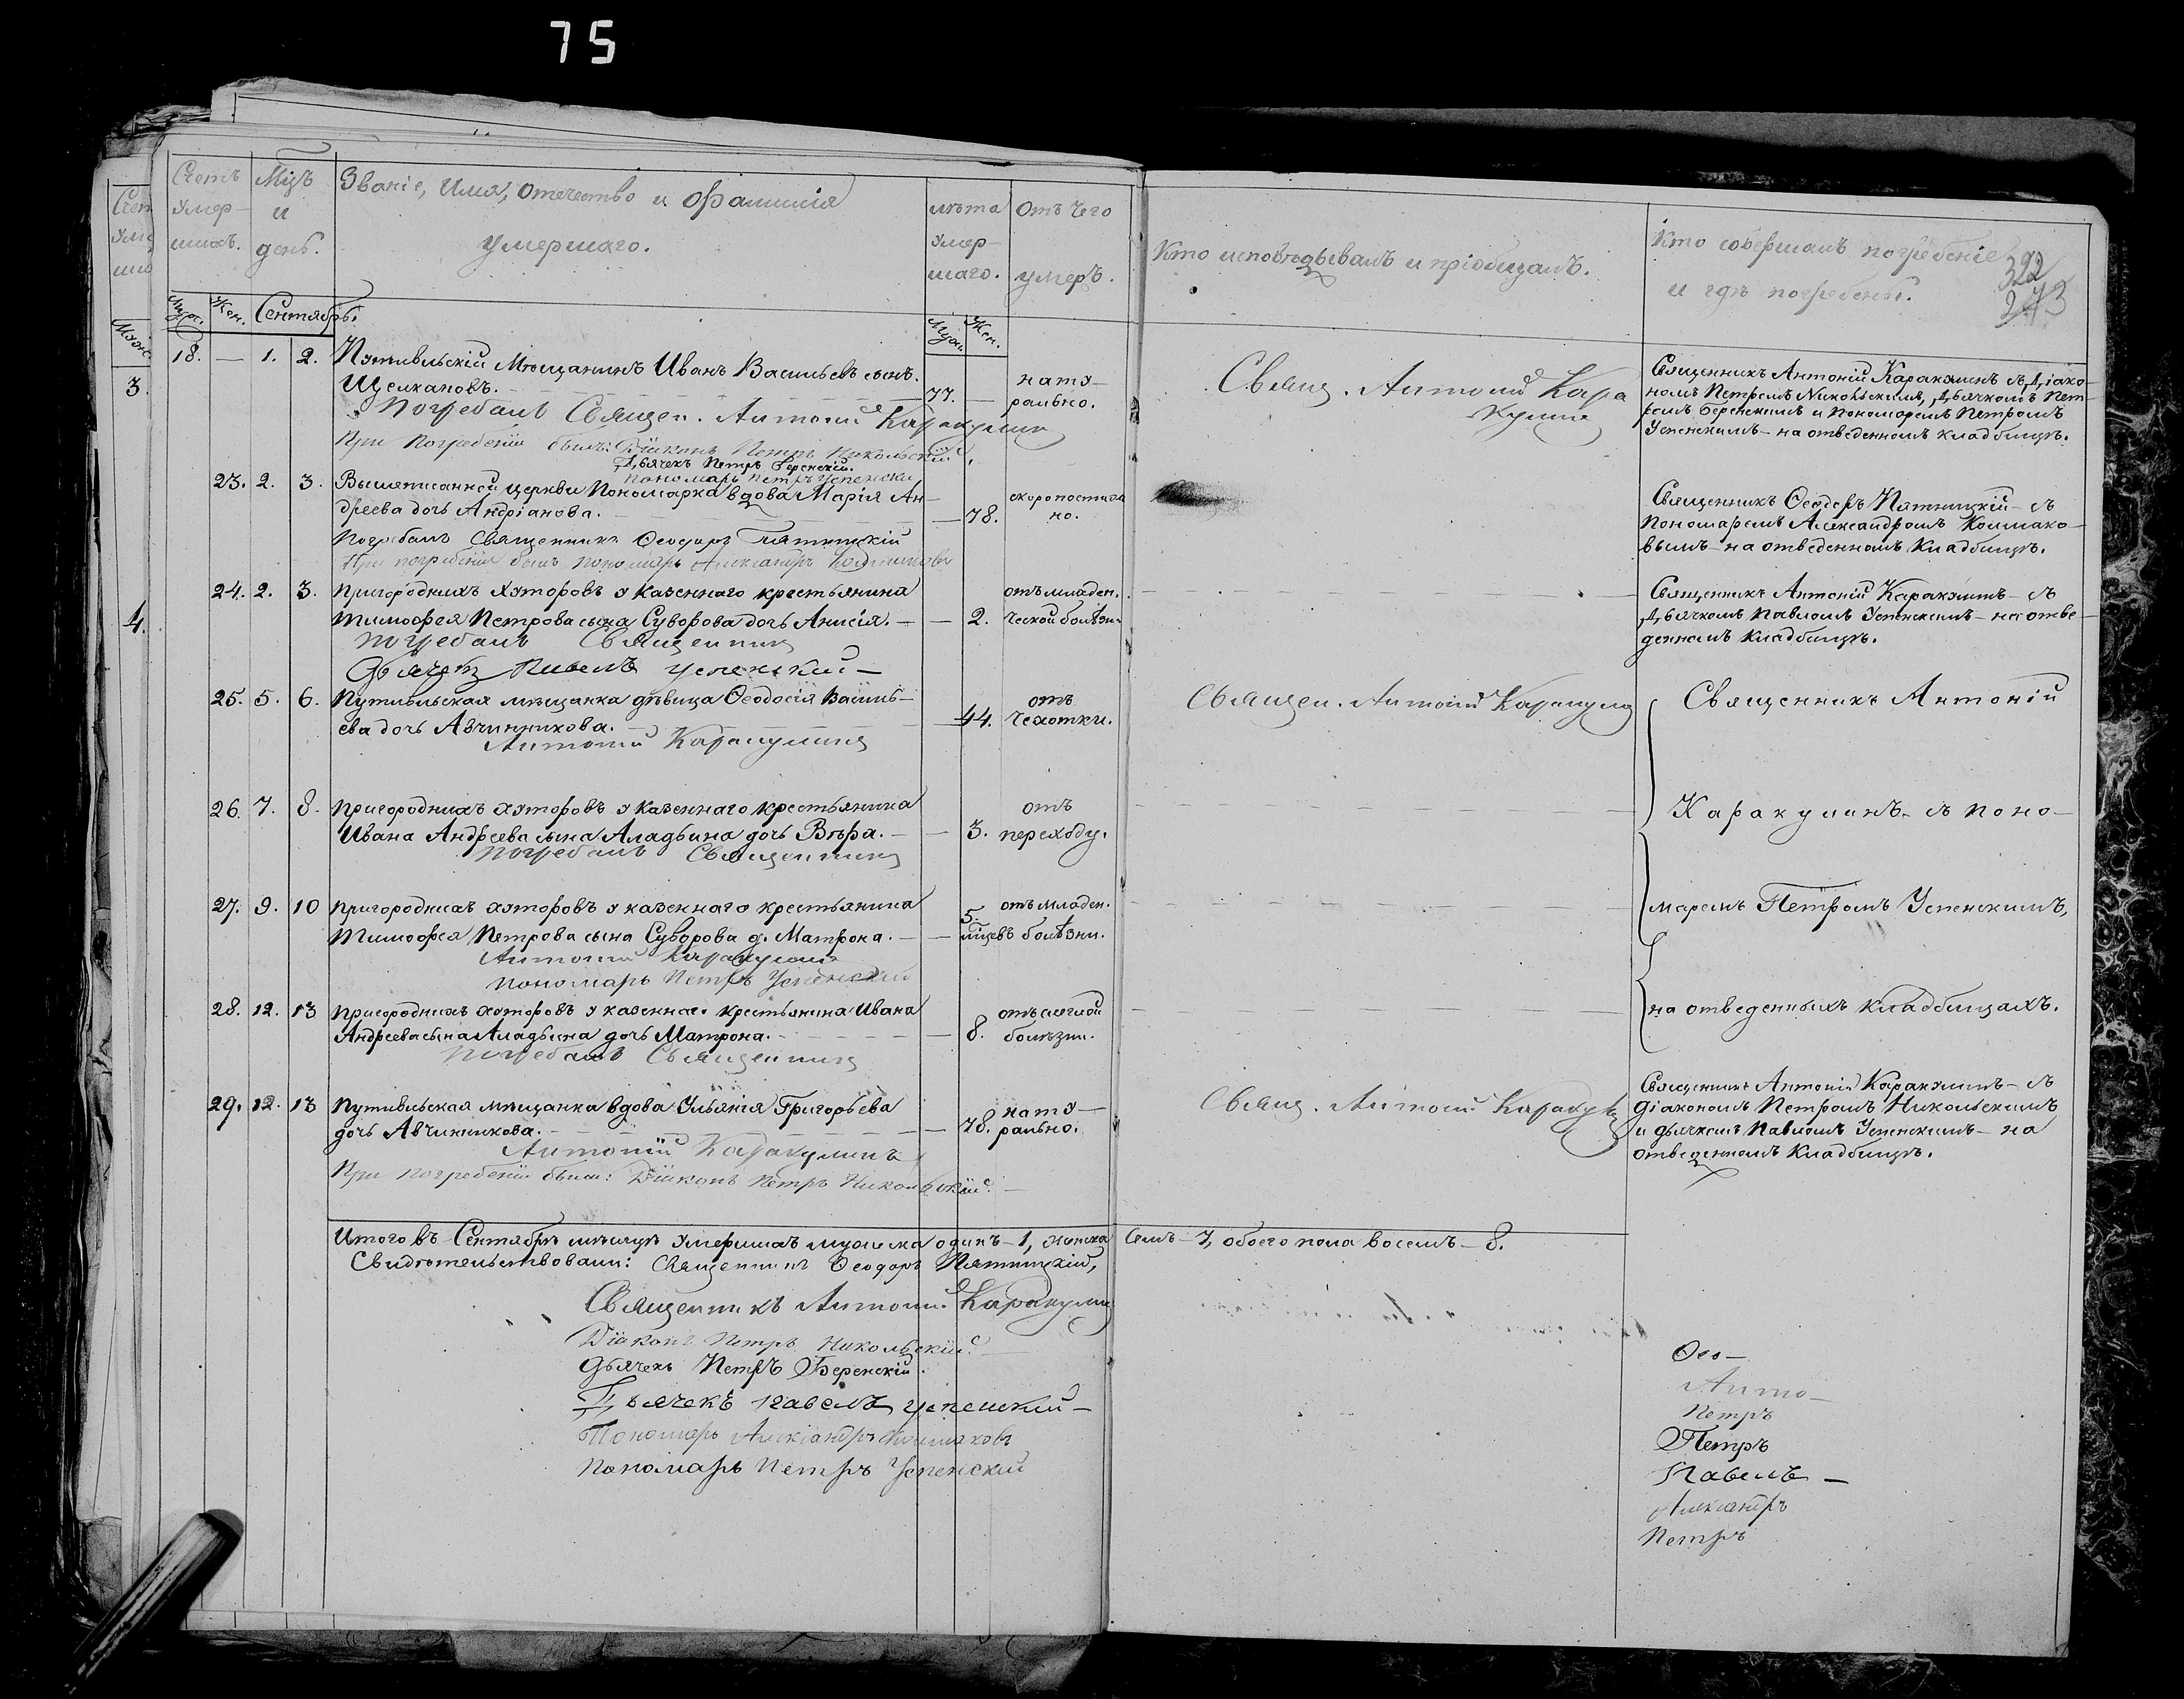 75
Счетъ умер-шихъ.
Мцъ и день.
Званіе, Имя, отечество и фамилія умершаго.
лѣта умер-шаго.
отъ чего умеръ.
Кто исповѣдывалъ и пріобщалъ.
Кто совершалъ погребеніе и гдѣ погребены.
322
273
Муж. Жен. Сентябрь.
Муж. Жен.
3.
4.
18. — 1. 2. Путивльскій Мѣщанинъ Иванъ Васильевъ сынъ
Щелкановъ. 77. — нату-
рально.
Свящ. Антоній Кара
кулинъ
Священникъ Антоній Каракулинъ съ Діако-
номъ Петромъ Никольскимъ, Дьячкомъ Пет-
ромъ Беренскимъ и Пономаремъ Петромъ
Успенскимъ — на отведенномъ кладбищѣ.
Погребалъ Священ. Антоній Каракулинъ
При погребеніи былъ: Діаконъ Петръ Никольскій.
Дьячекъ Петръ Беренскій.
пономарь Петръ Успенскій
23. 2. 3. Вышеписанной церкви Пономарка вдова Марія Ан-
дреева дочь Андріанова. — 78. скоропостиж
но.
Священникъ Ѳеодоръ Пятницкій — съ
Пономаремъ Александромъ Колмако-
вымъ — на отведенномъ Кладбищѣ.
Погребалъ Священникъ Ѳеодоръ Пятницкій
При погребеніи былъ пономарь Александръ Колмаковъ
24. 2. 3. Пригородныхъ хуторовъ у казеннаго крестьянина
Тимофея Петрова сына Суворова дочь Анисія. — — 2. отъ младен.
ческой болѣзн.
Священникъ Антоній Каракулинъ — съ
Дьячкомъ Павломъ Успенскимъ — на отве-
денномъ Кладбищѣ.
Погребалъ Священникъ
Дьячекъ Павелъ Успенскій —
25. 5. 6. Путивльская мѣщанка дѣвица Ѳеодосія Василь-
ева дочь Авчинникова. — 44. отъ
чехотки.
Священ. Антоній Каракулин
Священникъ Антоній
Антоній Каракулинъ
26. 7. 8. Пригородныхъ хуторовъ у казеннаго крестьянина
Ивана Андреева сына Аладьина дочь Вѣра. — — 3. отъ
переходу.
Каракулинъ — съ поно-
Погребалъ Священникъ
27. 9. 10 Пригородныхъ хуторовъ у казеннаго крестьянина
Тимофея Петрова сына Суворова д. Матрона. — — 5.
мцевъ отъ младен.
болѣзни.
маремъ Петромъ Успенскимъ,
Антоній Каракулинъ
пономарь Петръ Успенскій
28. 12. 13 Пригородныхъ хуторовъ у казеннаго крестьянина Ивана
Андреева сына Аладьина дочь Матрона. — 8. болѣзни.
на отведенныхъ кладбищахъ.
Погребалъ Священникъ
29. 12. 13 Путивльская мѣщанка вдова Ульянія Григорьева
дочь Авчинникова. — 78. нату-
рально.
Свящ. Антоній Каракул
Священникъ Антоній Каракулинъ — съ
Діакономъ Петромъ Никольскимъ
и дьячкомъ Павломъ Успенскимъ — на
отведенномъ Кладбищѣ.
Антоній Каракулинъ
При погребеніи былъ: Діаконъ Петръ Никольскій. —
Итого въ Сентябрѣ мѣсяцѣ умершихъ мужеска одинъ — 1, женска семь — 7, обоего пола восемь — 8.
Свидѣтельствовали: Священникъ Ѳеодоръ Пятницкій,
Священникъ Антоній Каракулинъ
Діаконъ Петръ Никольскій. —
Дьячекъ Петръ Беренскій.
Дьячекъ Павелъ Успенскій —
Пономарь Александръ Колмаковъ
Пономарь Петръ Успенскій
Ѳео-
Анто-
Петръ
Петръ
Павелъ —
Александръ
Петръ